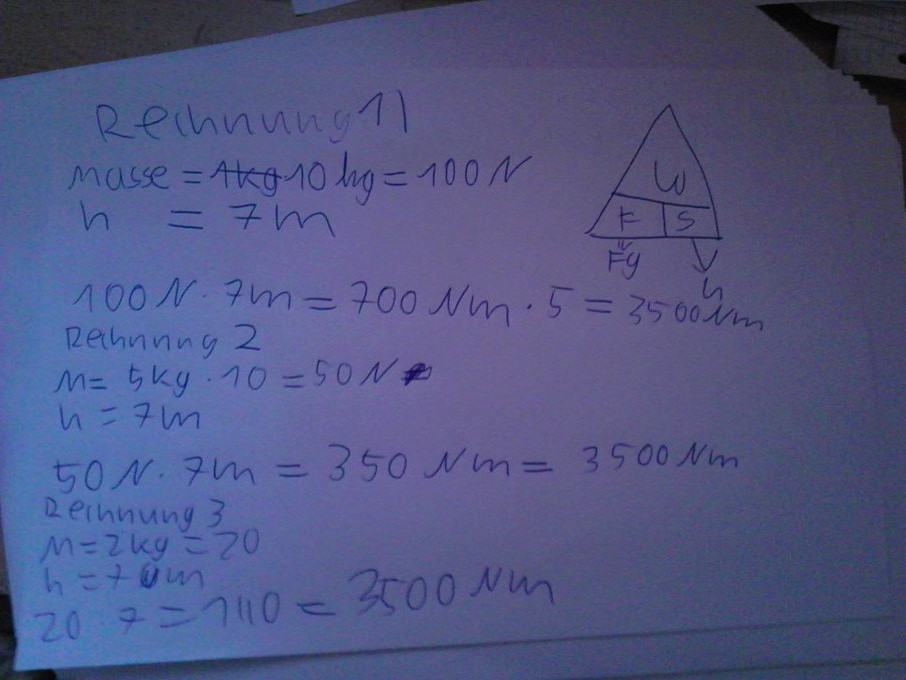 Rechnung 1)
masse = 1kg 10 kg = 100 N
h = 7m
W
F S
Fg
h
100 N · 7m = 700 Nm · 5 = 3500 Nm
Rechnung 2
M = 5kg · 10 = 50 N
h = 7m
50 N · 7m = 350 Nm = 3500 Nm
Rechnung 3
M = 2kg = 20
h = 7 m
20 · 7 = 140 = 3500 Nm